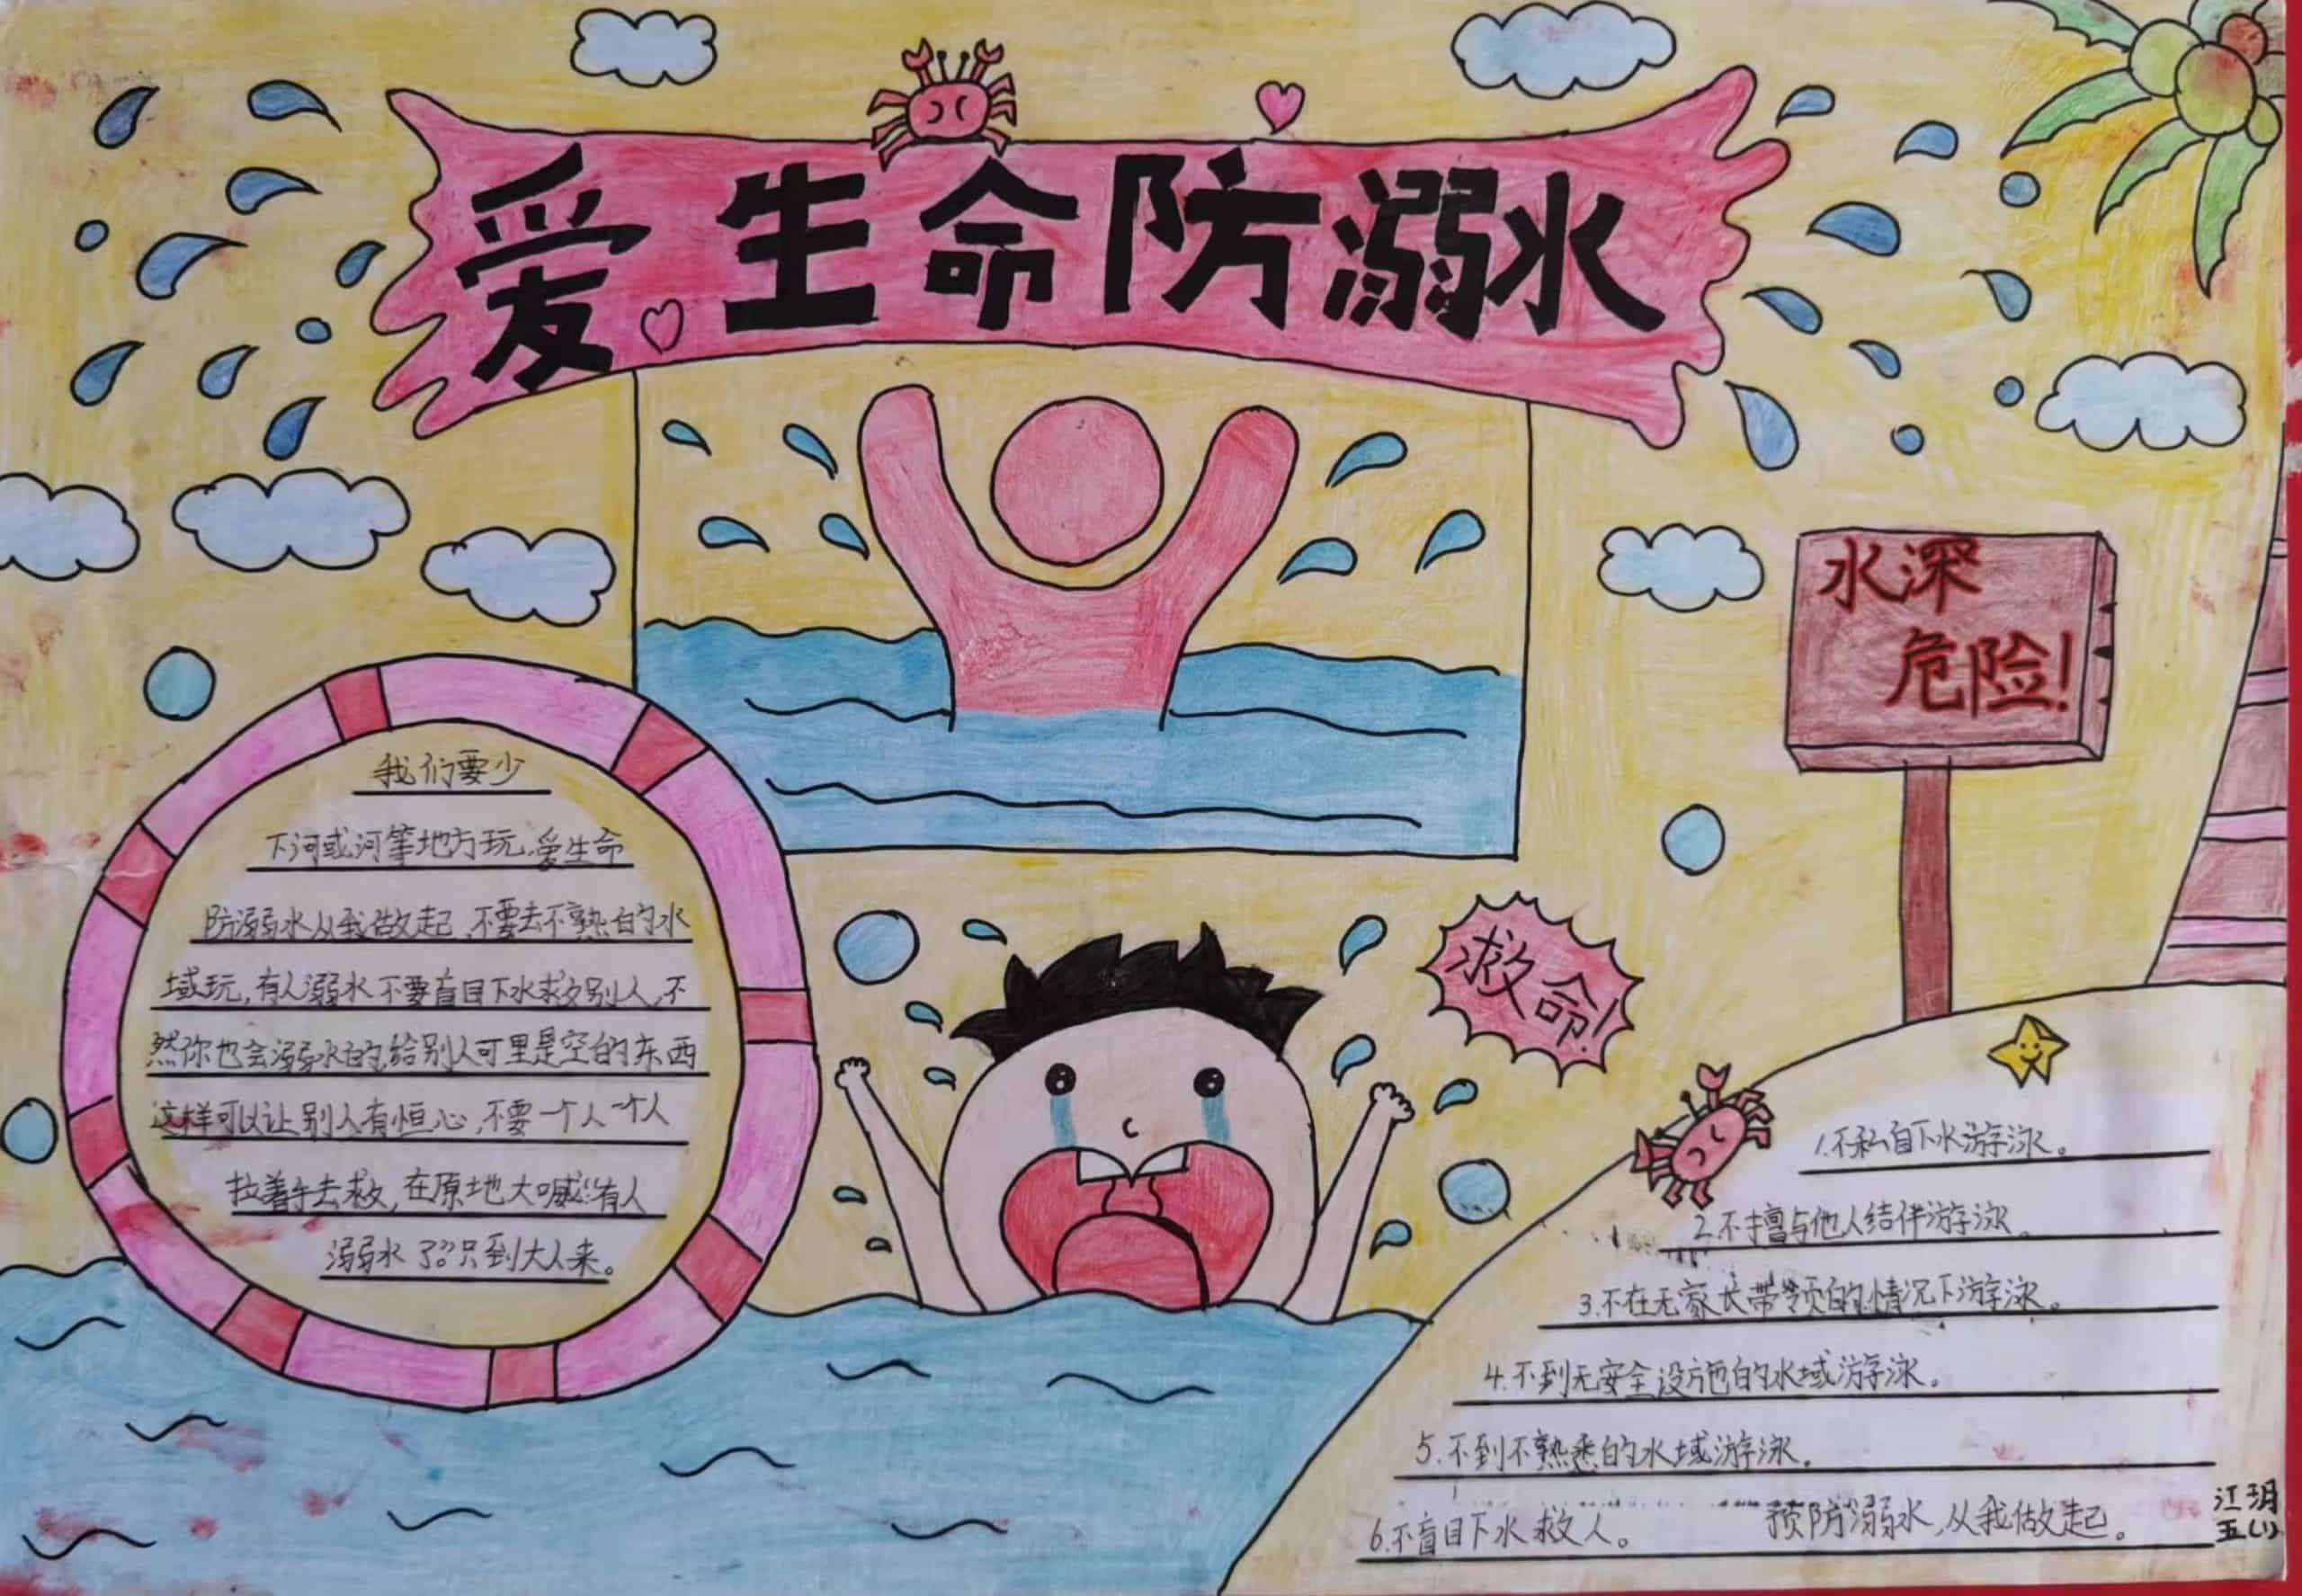 爱生命防溺水
水深
危险!
我们要少
下河或河等地方玩,爱生命
防溺水从我做起,不要去不熟的水
域玩,有人溺水不要盲目下水救别人,不
然你也会溺水的,给别人可里是空的东西
这样可以让别人有恒心,不要一个人一个人
拉着手去救,在原地大喊“有人
溺水了”只到大人来。
救命!
1.不私自下水游泳。
2.不擅与他人结伴游泳。
3.不在无家长带领的情况下游泳。
4.不到无安全设施的水域游泳。
5.不到不熟悉的水域游泳。
6.不盲目下水救人。 预防溺水,从我做起。
江玥
五(1)